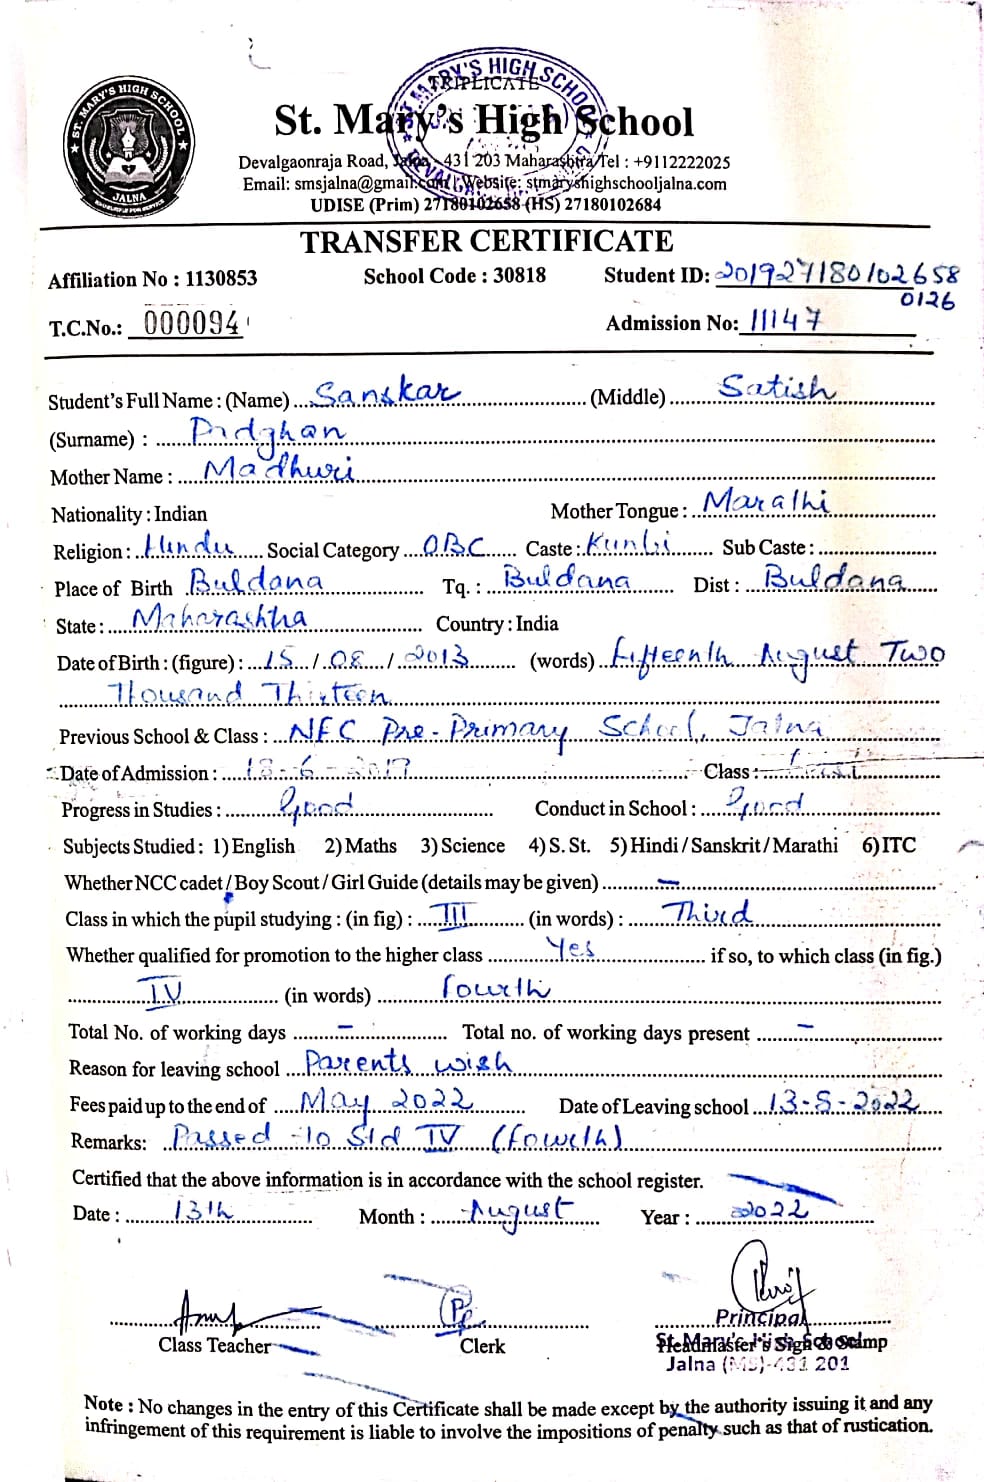 ST. MARY'S HIGH SCHOOL
JALNA
ST. MARY'S HIGH SCHOOL
TRIPLICATE
St. Mary's High School
Devalgaonraja Road, Jalna - 431 203 Maharashtra Tel : +9112222025
Email: smsjalna@gmail.com Website: stmaryshighschooljalna.com
UDISE (Prim) 27180102658 (HS) 27180102684
TRANSFER CERTIFICATE
Affiliation No : 1130853 School Code : 30818 Student ID: 201927180102658
0126
T.C.No.: 000094 Admission No: 11147
Student's Full Name : (Name) Sanskar (Middle) Satish
(Surname) : Pidghan
Mother Name : Madhuri
Nationality : Indian Mother Tongue : Marathi
Religion : Hindu Social Category OBC Caste : Kunbi Sub Caste :
Place of Birth Buldana Tq. : Buldana Dist : Buldana
State : Maharashtra Country : India
Date of Birth : (figure) : 15 / 08 / 2013 (words) Fifteenth August Two
Thousand Thirteen
Previous School & Class : NFC Pre-Primary School, Jalna
Date of Admission : 18-6-2019 Class :
Progress in Studies : Good Conduct in School : Good
Subjects Studied : 1) English 2) Maths 3) Science 4) S. St. 5) Hindi / Sanskrit / Marathi 6) ITC
Whether NCC cadet / Boy Scout / Girl Guide (details may be given) —
Class in which the pupil studying : (in fig) : III (in words) : Third
Whether qualified for promotion to the higher class Yes if so, to which class (in fig.)
IV (in words) Fourth
Total No. of working days — Total no. of working days present —
Reason for leaving school Parents wish
Fees paid up to the end of May 2022 Date of Leaving school 13-8-2022
Remarks: Passed to Std IV (Fourth)
Certified that the above information is in accordance with the school register.
Date : 13th Month : August Year : 2022
Principal
Class Teacher Clerk
Jalna (MS)-431 201
Note : No changes in the entry of this Certificate shall be made except by the authority issuing it and any
infringement of this requirement is liable to involve the impositions of penalty such as that of rustication.